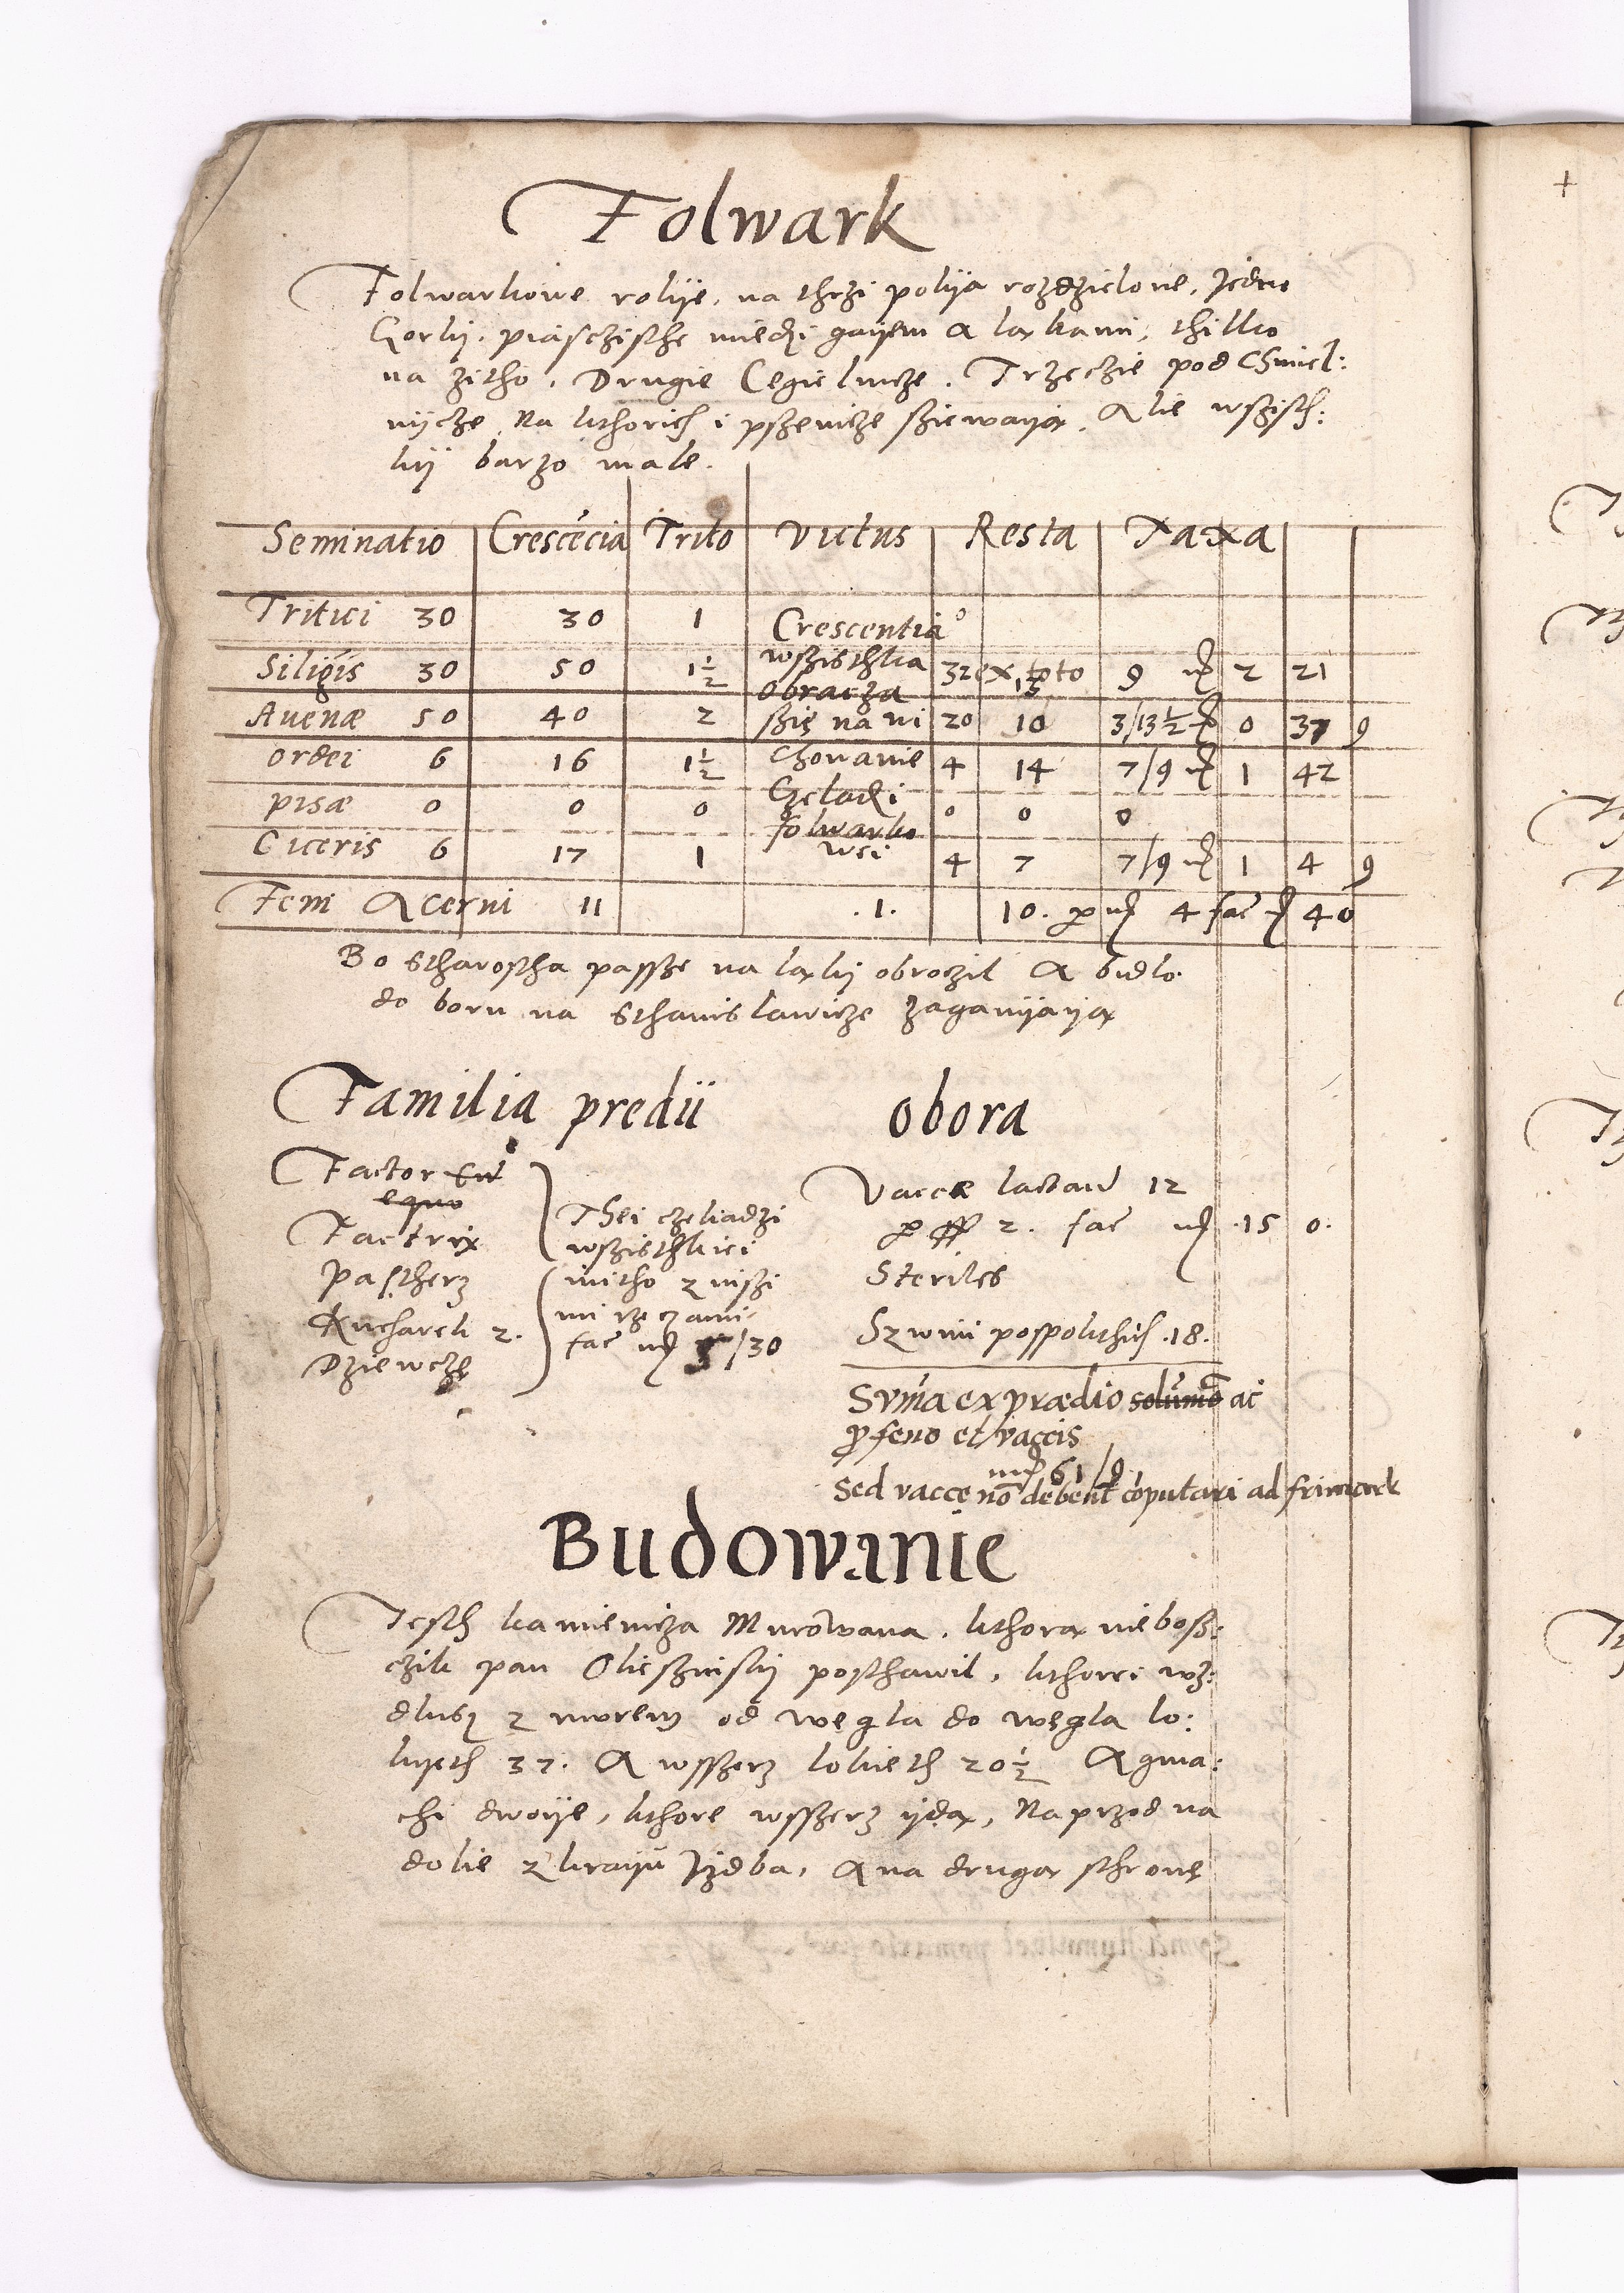 Folwark
Folwarkowe rolije, na thrzi polija rozdzielone, Jedne
Gorky, piasczische miedzi gayem a lakami, thilko
na zitho, Drugie Cegielnicze. Trzeczie pod Chmiel:
nijcze, Na kthorich i pszenicze sziewayą, Alie wszisth:
kij barzo male.
Seminatio Crescēcia Trito Victus Resta Taxa
Tritici 30 30 1 Crescentia
Siliginis 30 50 1½ wszisthka 32 15 9 mr 2 21
obracza
Auenæ 50 40 2 szię na wi 20 10 3/13½ 0 37 9
Ordei 6 16 1½ chowanie 4 14 7/9 mr 1 42
pisæ 0 0 0 Czeladzi 0 0 0
folwarko
Ciceris 6 17 1 wei 4 7 7/9 mr 1 4 9
Feni Acerni 11 .1. 10. p mr 4 fac 40
Bo Stharostha passze na laki obroczil A bidlo
do boru na Sthanislawicze zaganijayą
Familia predii
Factor cū
equo
Factrix
Pastherz
Kucharek 2.
Dziewczę
Thei czeliadzi
wszisthkiei
mitho z inszi
mi rzeczami
fac mr 5/30
Obora
Vaccæ lactand 12
p ff 2. fac mr 15 0.
Steriles
Szwini pospolithich .18.
Sum̄a ex prædio solummō ac
p feno et vaccis
mr 61/9
Sed vacce nō debent cōputari ad frimark
Budowanie
Jesth kamienicza Murowana, kthorą niebosz:
czik pan Olieszniskij posthawil, kthorei wz:
dlusz z murem od węgla do węgla lo:
kijeth 37. A wsszerz lokieth 20½ A gma:
chi dwoije, kthore wsszerz ijdą, Naprzod na
dolie z kraiju Izdba, A na drugą schronę